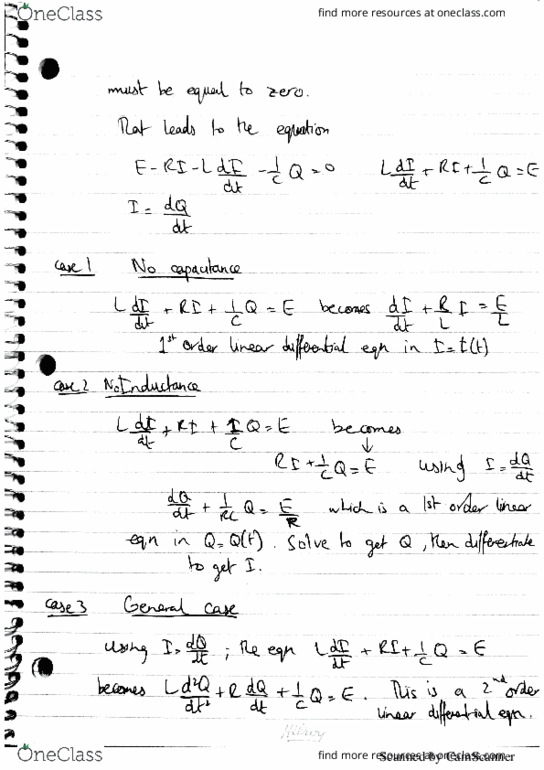 OneClass
find more resources at oneclass.com
must be equal to zero.
That leads to the equation
E - RI - L dI/dt - 1/C Q = 0    L dI/dt + RI + 1/C Q = E
I = dQ/dt
case 1 No capacitance
L dI/dt + RI + 1/C Q = E becomes dI/dt + R/L I = E/L
1st order linear differential eqn in I = I(t)
case 2 No Inductance
L dI/dt + RI + 1/C Q = E becomes
↓
RI + 1/C Q = E using I = dQ/dt
dQ/dt + 1/RC Q = E/R which is a 1st order linear
eqn in Q = Q(t). Solve to get Q, then differentiate
to get I.
case 3 General case
using I = dQ/dt ; the eqn L dI/dt + RI + 1/C Q = E
becomes L d²Q/dt² + R dQ/dt + 1/C Q = E. This is a 2nd order
linear differential eqn.
Hilroy
OneClass
find more resources at oneclass.com
Scanned by CamScanner